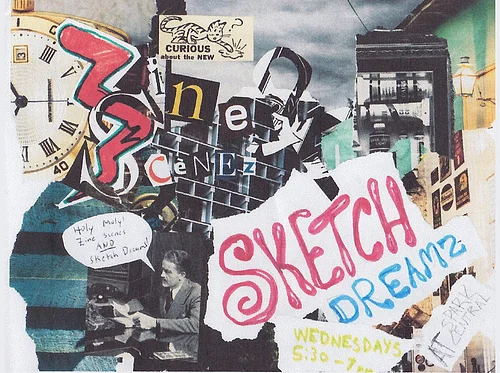 CURIOUS
about the NEW
Zine
&
ScenEZ
Holy Moly!
Zine Scenes
AND
Sketch Dreams!
SKETCH
DREAMZ
WEDNESDAYS
5:30 - 7pm
AT SPARK
CENTRAL
40